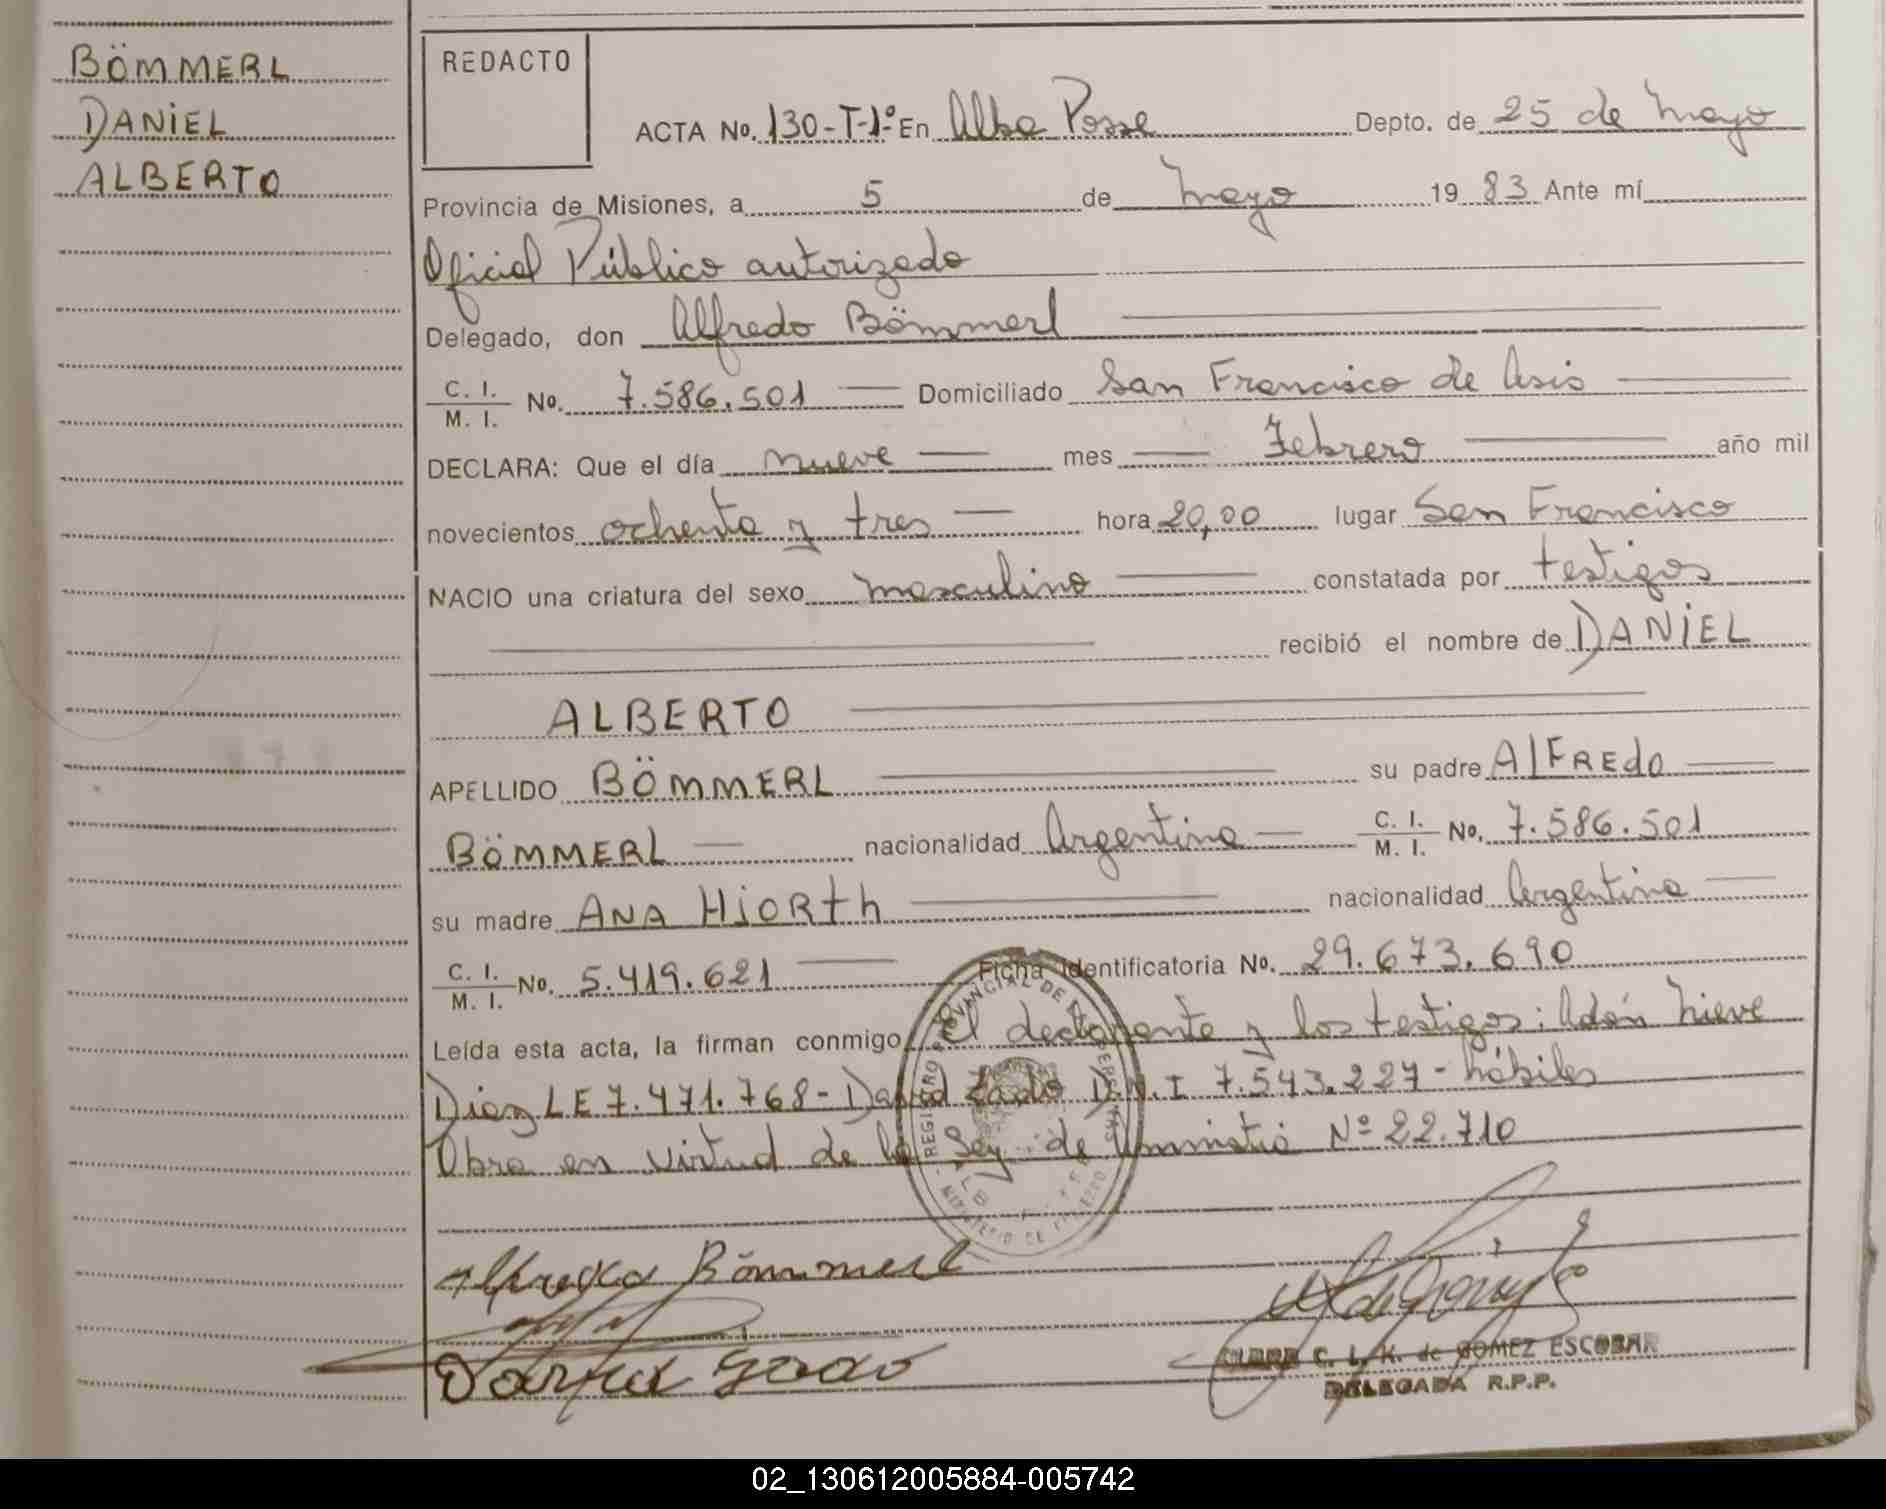 BÖMMERL
DANIEL
ALBERTO
REDACTO
ACTA No. 130-T-1º En Alba Posse Depto. de 25 de Mayo
Provincia de Misiones, a 5 de Mayo 1983 Ante mí
Oficial Público autorizado
Delegado, don Alfredo Bömmerl
C. I. / M. I. No. 7.586.501 Domiciliado San Francisco de Asis
DECLARA: Que el día nueve mes Febrero año mil
novecientos ochenta y tres hora 20,00 lugar San Francisco
NACIO una criatura del sexo masculino constatada por testigos
recibió el nombre de DANIEL
ALBERTO
APELLIDO BÖMMERL su padre ALFREDO
BÖMMERL nacionalidad Argentina C. I. / M. I. No. 7.586.501
su madre ANA HIORTH nacionalidad Argentina
C. I. / M. I. No. 5.419.621 Ficha Identificatoria No. 29.673.690
Leída esta acta, la firman conmigo El declarante y los testigos: Adán Nieve
Diez LE 7.471.768 - D.N.I 7.543.227 - hábiles
Obra en virtud de la Ley de Amnistia Nº 22.710
REGISTRO PROVINCIAL DE
Alfredo Bömmerl
C. L. K. de GOMEZ ESCOBAR
DELEGADA R.P.P.
02_130612005884-005742